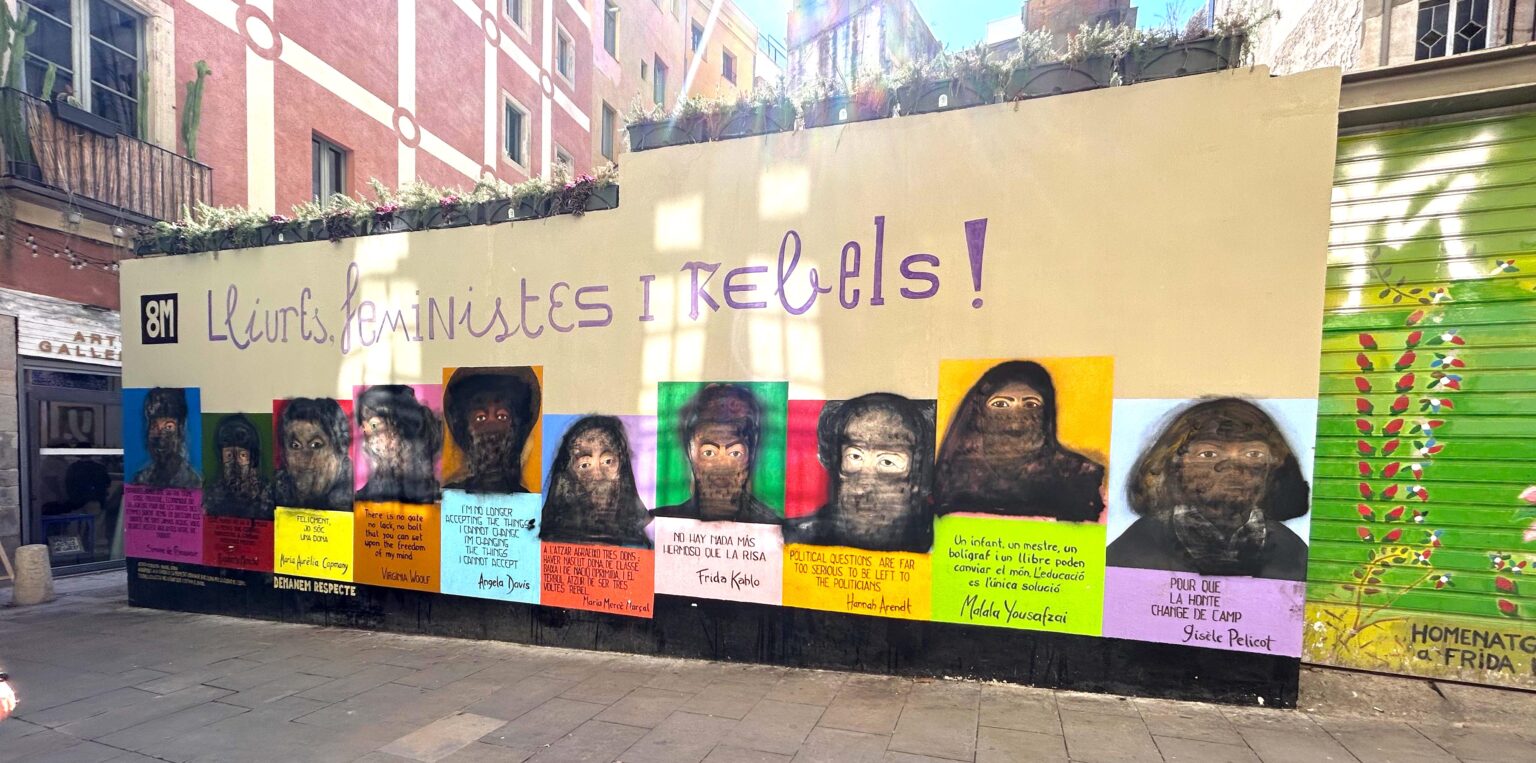 ART
GALLE
8M
Lliures, feministes i rebels!
Simone de Beauvoir
FELIÇMENT,
JO SÓC
UNA DONA
Maria Aurèlia Capmany
DEMANEM RESPECTE
There is no gate
no lock, no bolt
that you can set
upon the freedom
of my mind
VIRGINIA WOOLF
I'M NO LONGER
ACCEPTING THE THINGS
I CANNOT CHANGE
I'M CHANGING
THE THINGS
I CANNOT ACCEPT
Angela Davis
A L'ATZAR AGRAEIXO TRES DONS:
HAVER NASCUT DONA, DE CLASSE
BAIXA I DE NACIÓ OPRIMIDA. I EL
TÈRBOL ATZUR DE SER TRES
VOLTES REBEL.
Maria Mercè Marçal
NO HAY NADA MÁS
HERMOSO QUE LA RISA
Frida Kahlo
POLITICAL QUESTIONS ARE FAR
TOO SERIOUS TO BE LEFT TO
THE POLITICIANS
Hannah Arendt
Un infant, un mestre, un
bolígraf i un llibre poden
canviar el món. L'educació
és l'única solució
Malala Yousafzai
POUR QUE
LA HONTE
CHANGE DE CAMP
Gisèle Pelicot
HOMENATG
a FRIDA